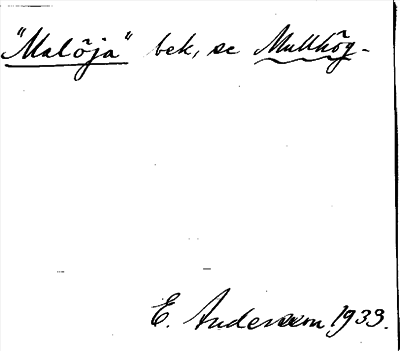 "Malöja" bek, se Mullhög-
E. Andersson 1933.